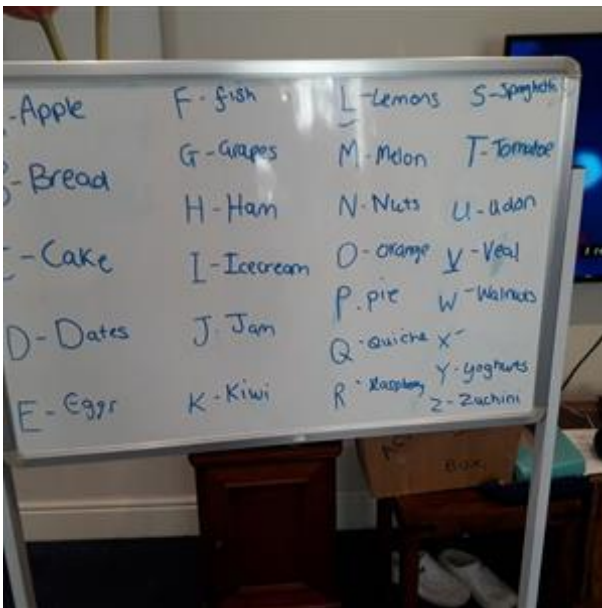 Apple
B - Bread
C - Cake
D - Dates
E - Eggs
F - fish
G - Grapes
H - Ham
I - Icecream
J. Jam
K - Kiwi
L - Lemons
M - Melon
N - Nuts
O - orange
P. pie
Q - Quiche
R - Raspberry
S - Spaghetti
T - Tomatoe
U - udon
V - Veal
W - Walnuts
X -
Y - yoghurts
Z - Zuchini
BOX